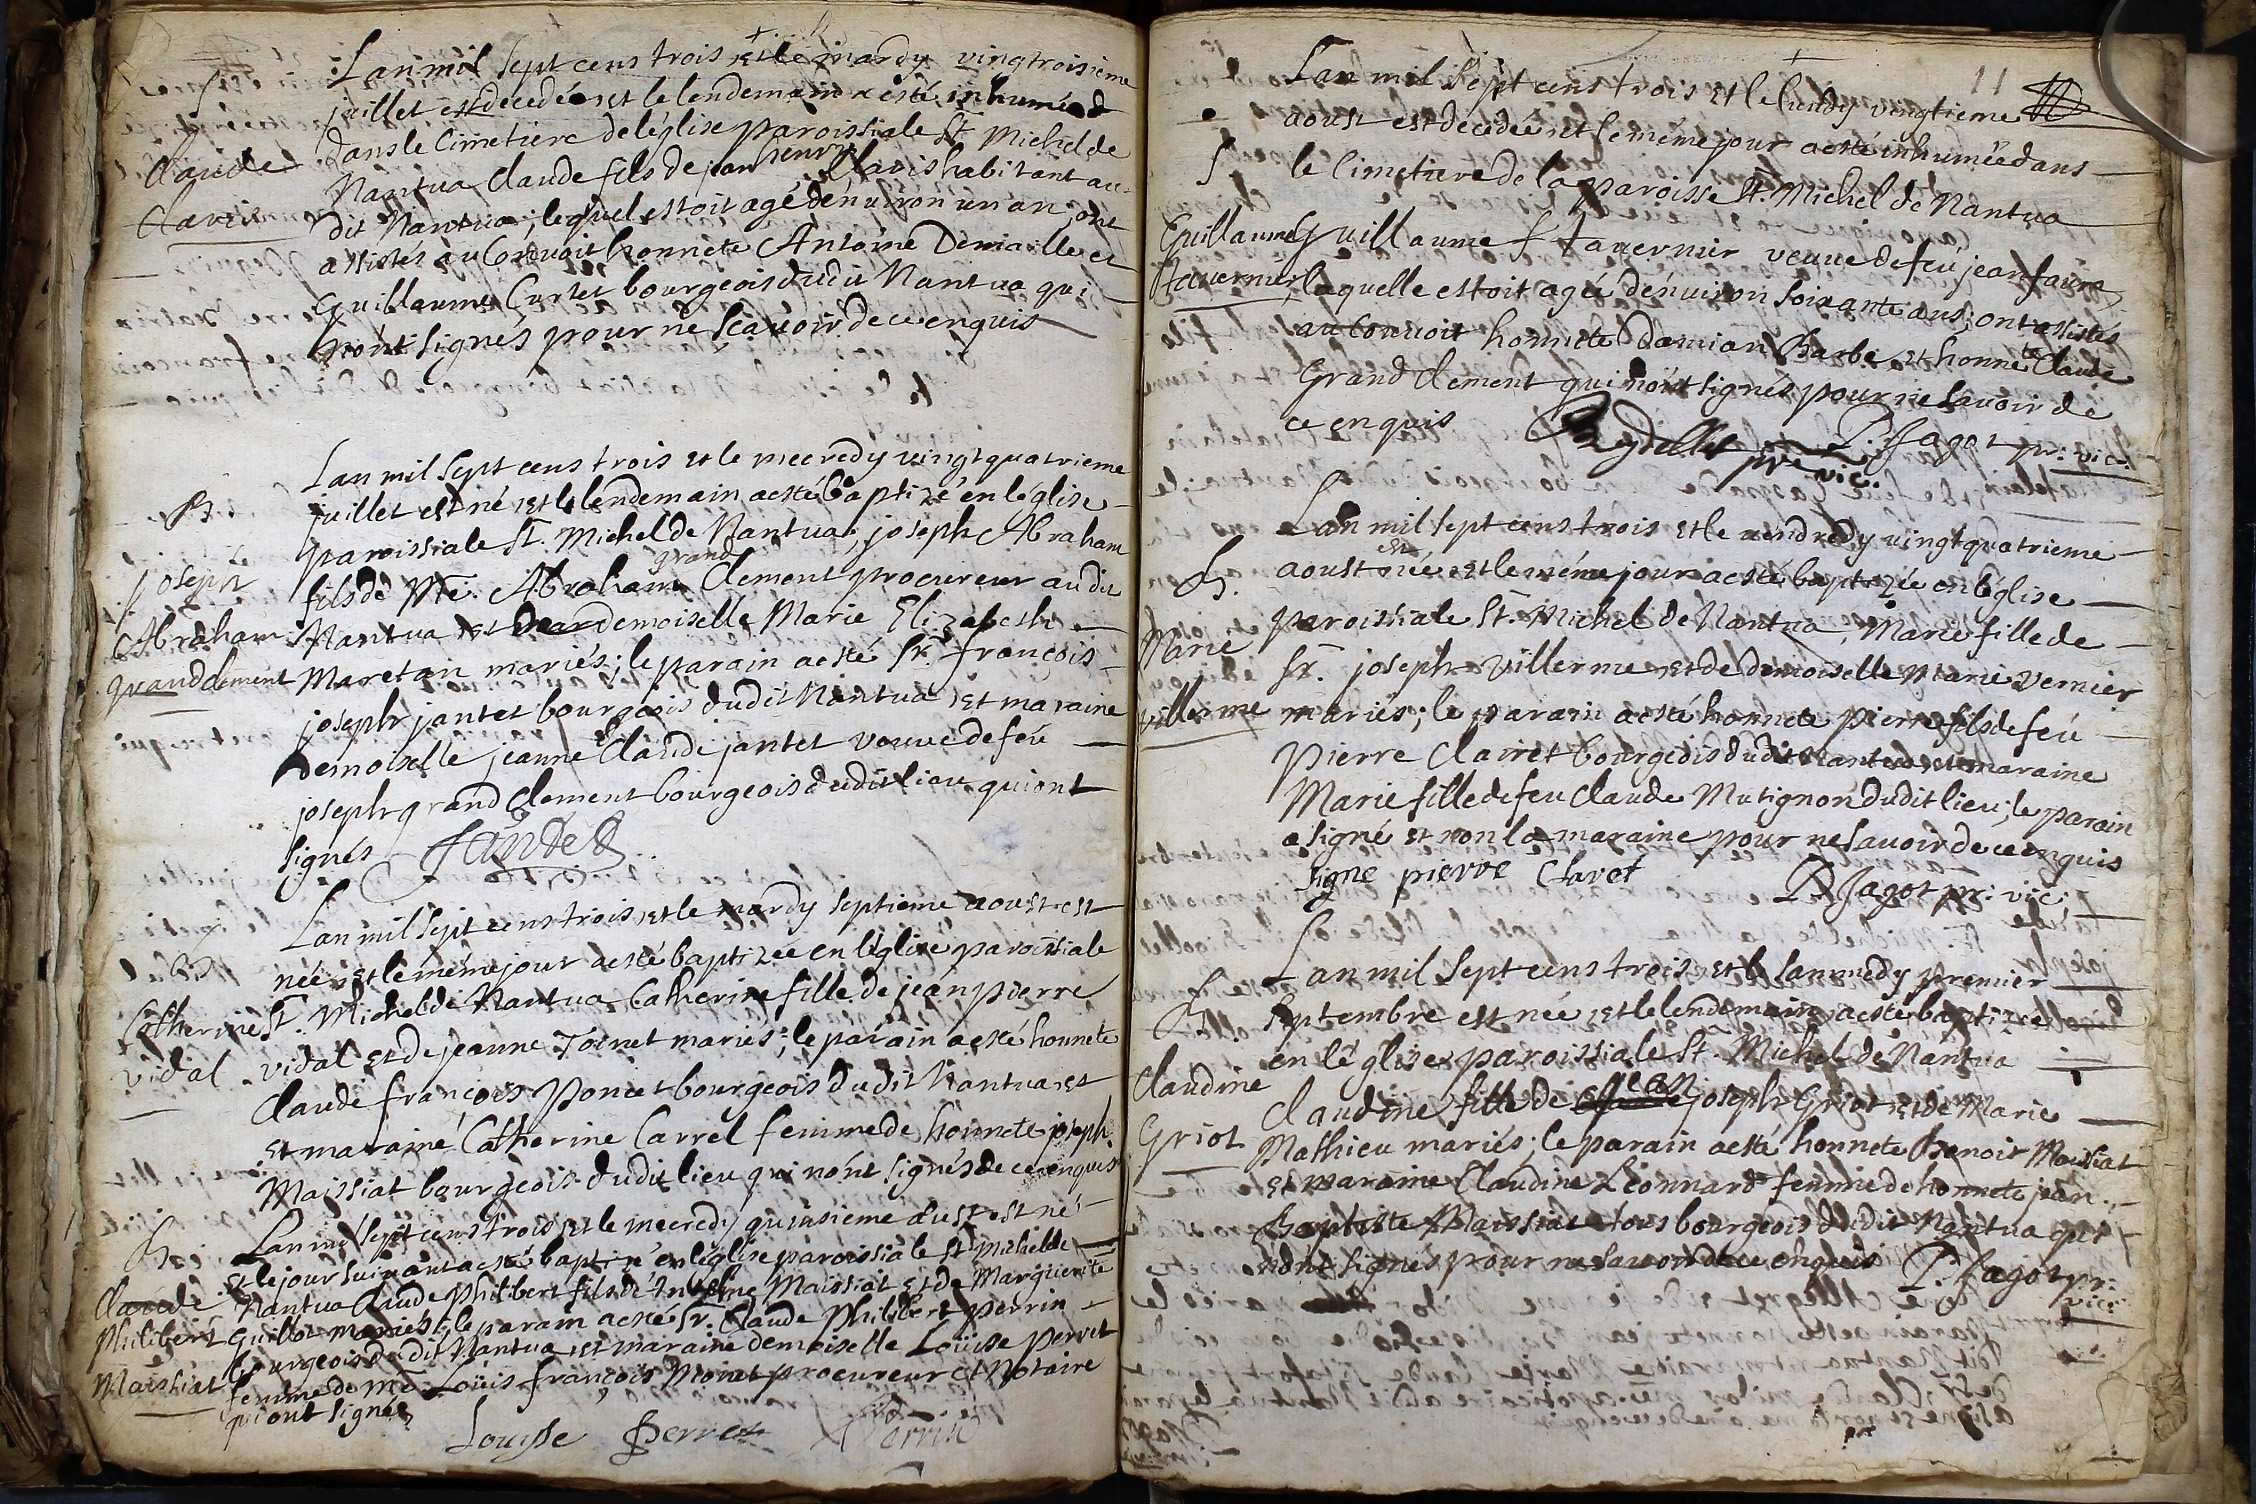 Lan mil sept cens trois et le mardy vingtroisieme
juillet est decedé et le lendemain a esté inhumé
dans le Cimetiere de léglise paroissiale St. Michel de
Claude
Nantua Claude fils de jean henry Clavis habitant au
Clavis
dit Nantua; lequel estoit agé dénuiron un an, ont
assistés au Convoit honnete Antoine Demaille et
Guillaume Curtet bourgeois dudit Nantua qui
nónt signés pour ne sçavoir de ce enquis
Lan mil sept cens trois et le mecredy vingtquatrieme
B
juillet est né et le lendemain a esté baptizé en léglise
paroissiale St. Michel de Nantua; joseph Abraham
joseph
fils de Me. Abraham grand Clement procureur audit
Abraham
Nantua et de demoiselle Marie Elizabeth
grand clement
Maretan mariés; le parain a esté Sr. françois
joseph jantet bourgeois dudit Nantua et maraine
Demoiselle jeanne Claude jantet veuve de feú
joseph grand Clement bourgeois dudit lieu qui ont
signés Jantet
Lan mil sept cens trois et le mardy septieme aoust est
B
née et le méme jour a esté baptizée en léglise paroissiale
Catherine
St. Michel de Nantua Catherine fille de jean pierre
vidal
vidal et de jeanne Tornet mariés; le parain a esté honnete
Claude françois Poncet bourgeois dudit Nantua et
et maraine Catherine Carrel femme de honnete joseph
Maissiat bourgeois dudit lieu qui nónt signés de ce enquis
Lan mil sept cens trois et le mecredy quinsieme aust est né
B
et le jour suivant a esté baptizé en léglise paroissiale St. Michel de
Claude
Nantua Claude Philibert fils de Anthelme Maissiat et de Marguerite
Philibert
Guillot mariés; le parain a esté Sr. Claude Philibert perrin
bourgeois dudit Nantua et maraine demoiselle Loüise perret
Maissiat
femme de Me Loüis françois Monet procureur et Notaire
qui ont signés
Louysse Perret Perrin
11
Lan mil sept cens trois et le lundy vingtieme
aoust est decedée et le méme jour a esté inhumée dans
S
le Cimetiere de la paroisse St. Michel de Nantua
Guillaume
Guillaume f tavernier veuve de feu jean faure
tavernier
laquelle estoit agée dénuiron soixante ans; ont assistés
au Convoit honnete Damian Barbe et honnete Claude
Grand Clement qui nónt signés pour ne savoir de
ce enquis Reydellet pre vic. P. Jagot pr: vic:
Lan mil sept cens trois et le vendredy vingtquatrieme
B.
aoust est née et le méme jour a esté baptizée en léglise
paroissiale St. Michel de Nantua, Marie fille de
Marie
Sr. joseph villerme et de demoiselle Marie vernier
villerme
mariés; le parain a esté honnete pierre fils de feú
Pierre Clairet bourgeois dudit Nantua et maraine
Marie fille de feu Claude Mutignon dudit lieu; le parain
a signé et non la maraine pour ne savoir de ce enquis
signe pierre Claret
P. Jagot pr: vic:
Lan mil sept cens trois et le sammedy premier
B.
septembre est née et le lendemain a esté baptizée
en léglise paroissiale St. Michel de Nantua
Claudine
Claudine fille de joseph Griot et de Marie
Griot
Mathieu mariés; le parain a esté honnete Benoit Maissiat
et maraine Claudine Léonnard femme de honnete jean
Baptiste Maissiat tous bourgeois dudit Nantua qui
nónt signés pour ne savoir de ce enquis P. Jagot pr:
vic: